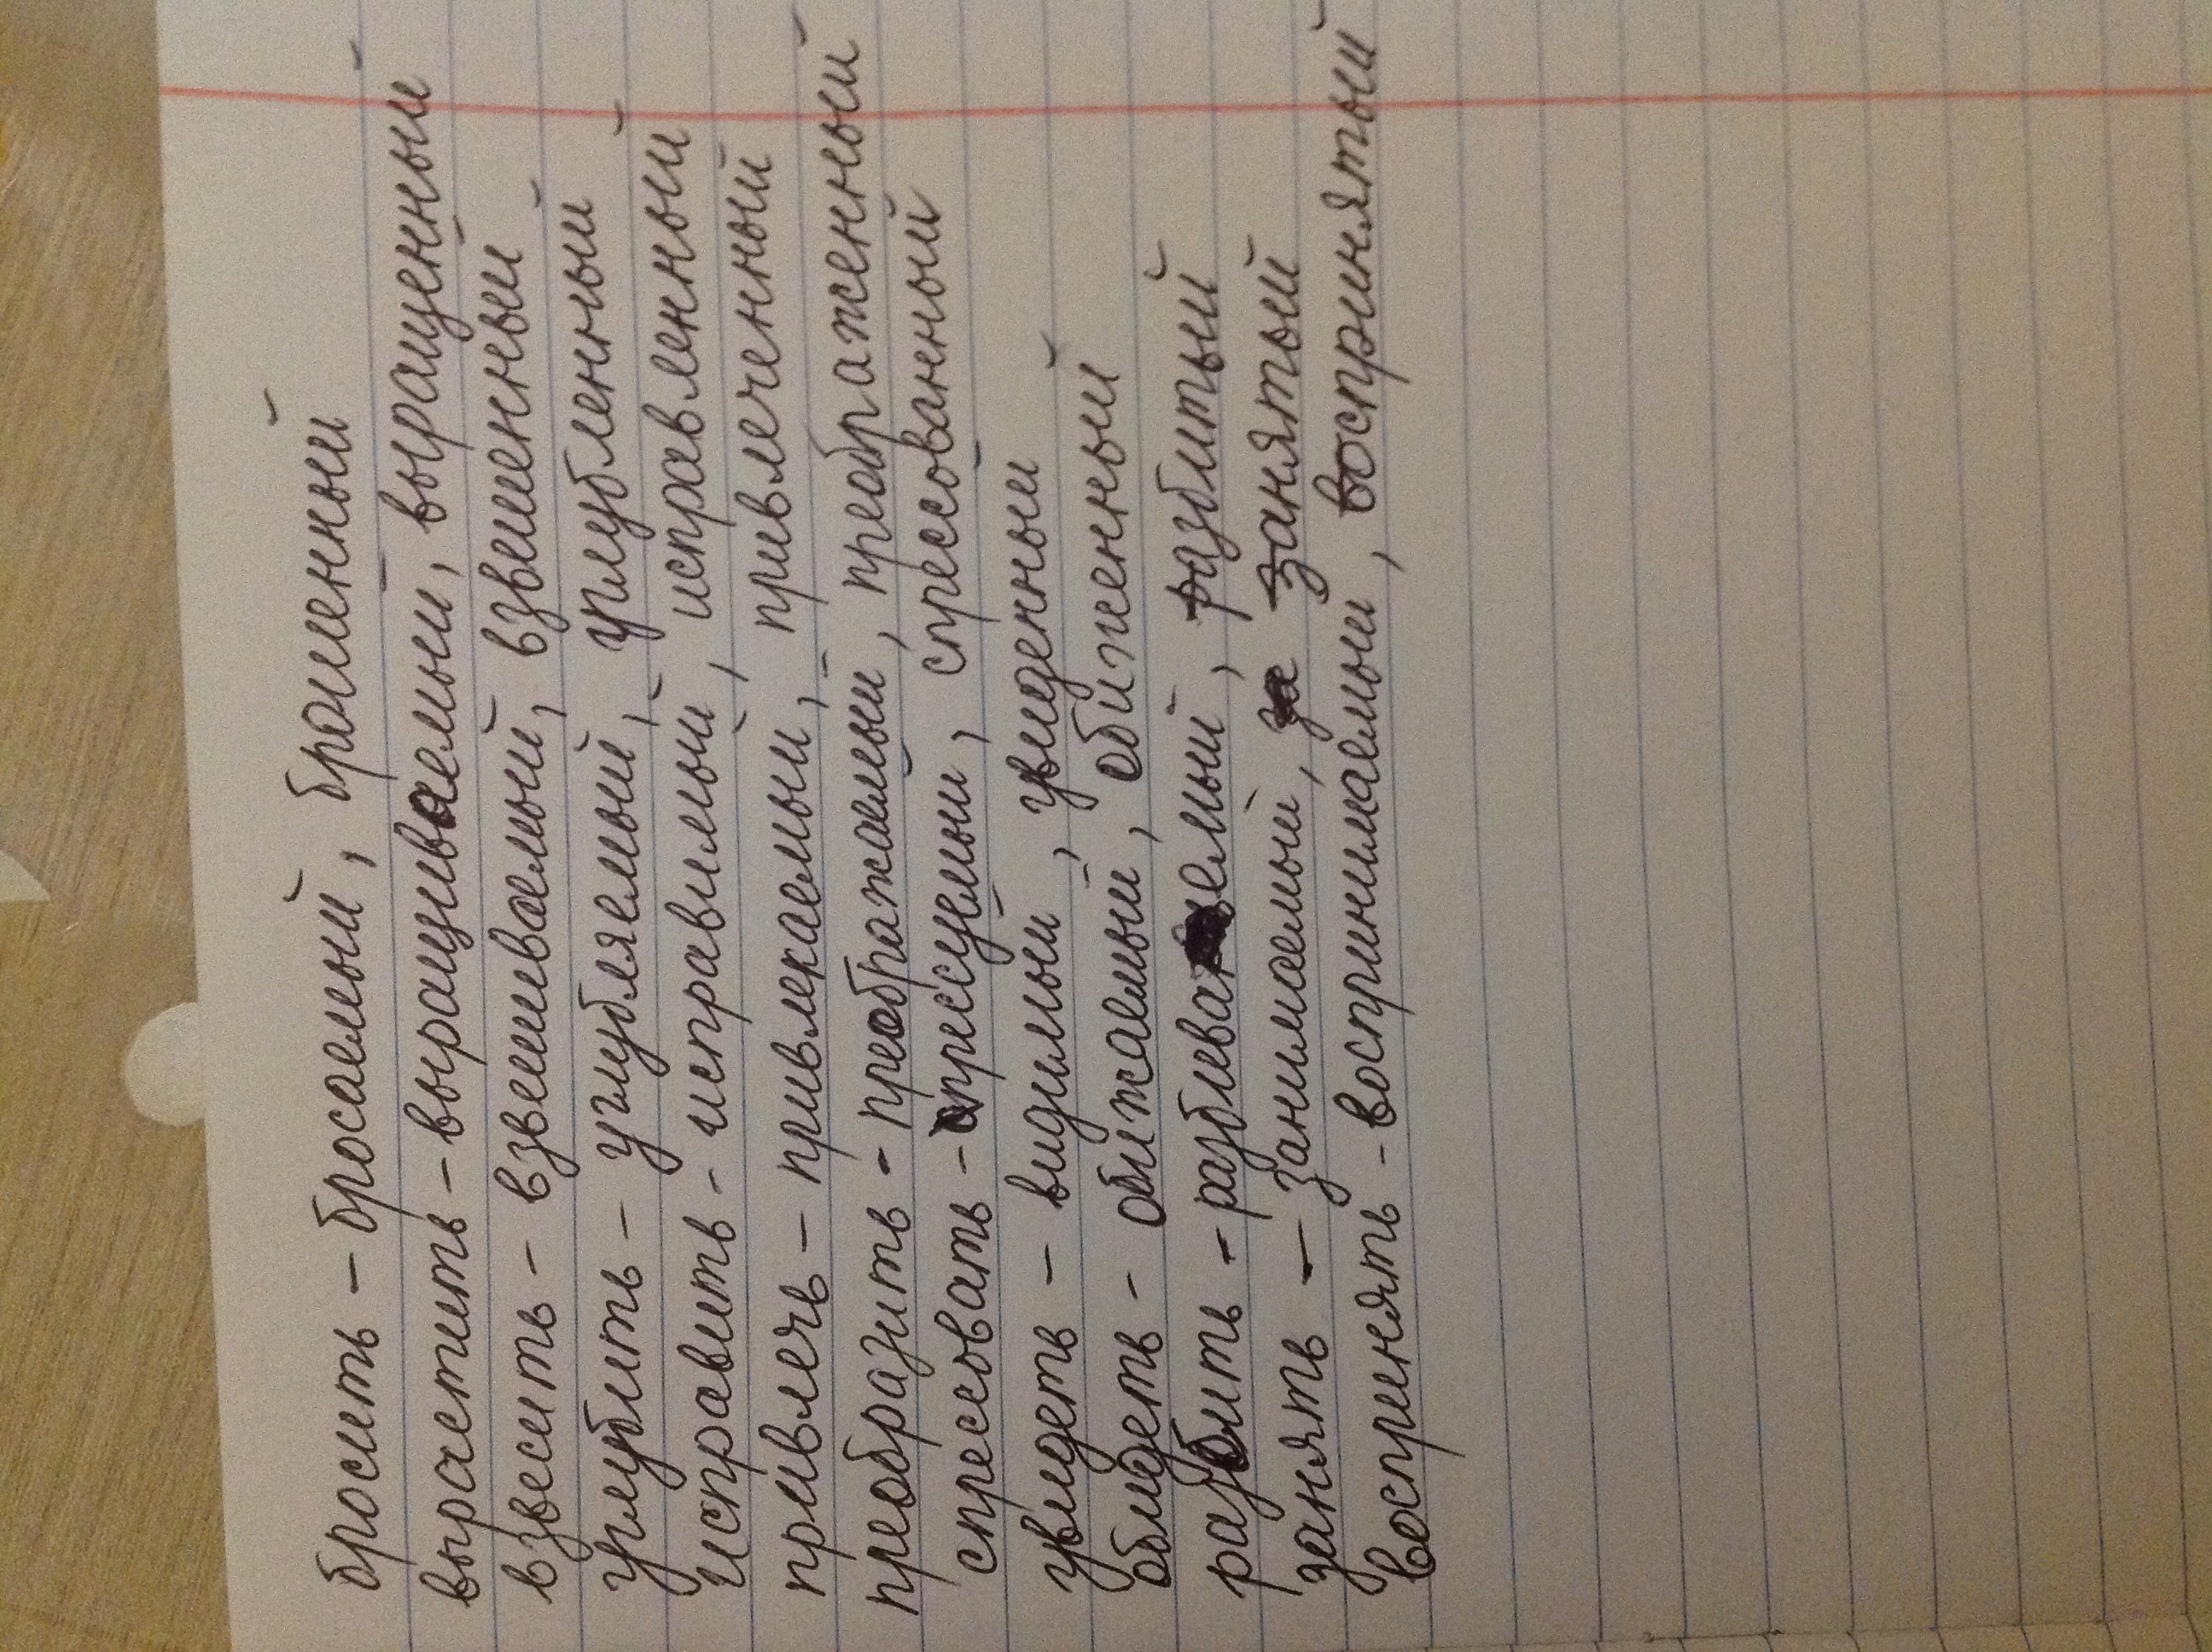 бросить – бросаемый, брошенный
вырастить – выращиваемый, выращенный
взвесить – взвешиваемый, взвешенный
углубить – углубляемый, углубленный
исправить – исправимый, исправленный
привлечь – привлекаемый, привлеченный
преобразить – преображаемый, преображенный
спресовать – прессуемый, спресованный
увидеть – видимый, увиденный
обидеть – обижаемый, обиженный
разбить – разбиваемый, разбитый
занять – занимаемый, за занятый
воспринять – воспринимаемый, воспринятый